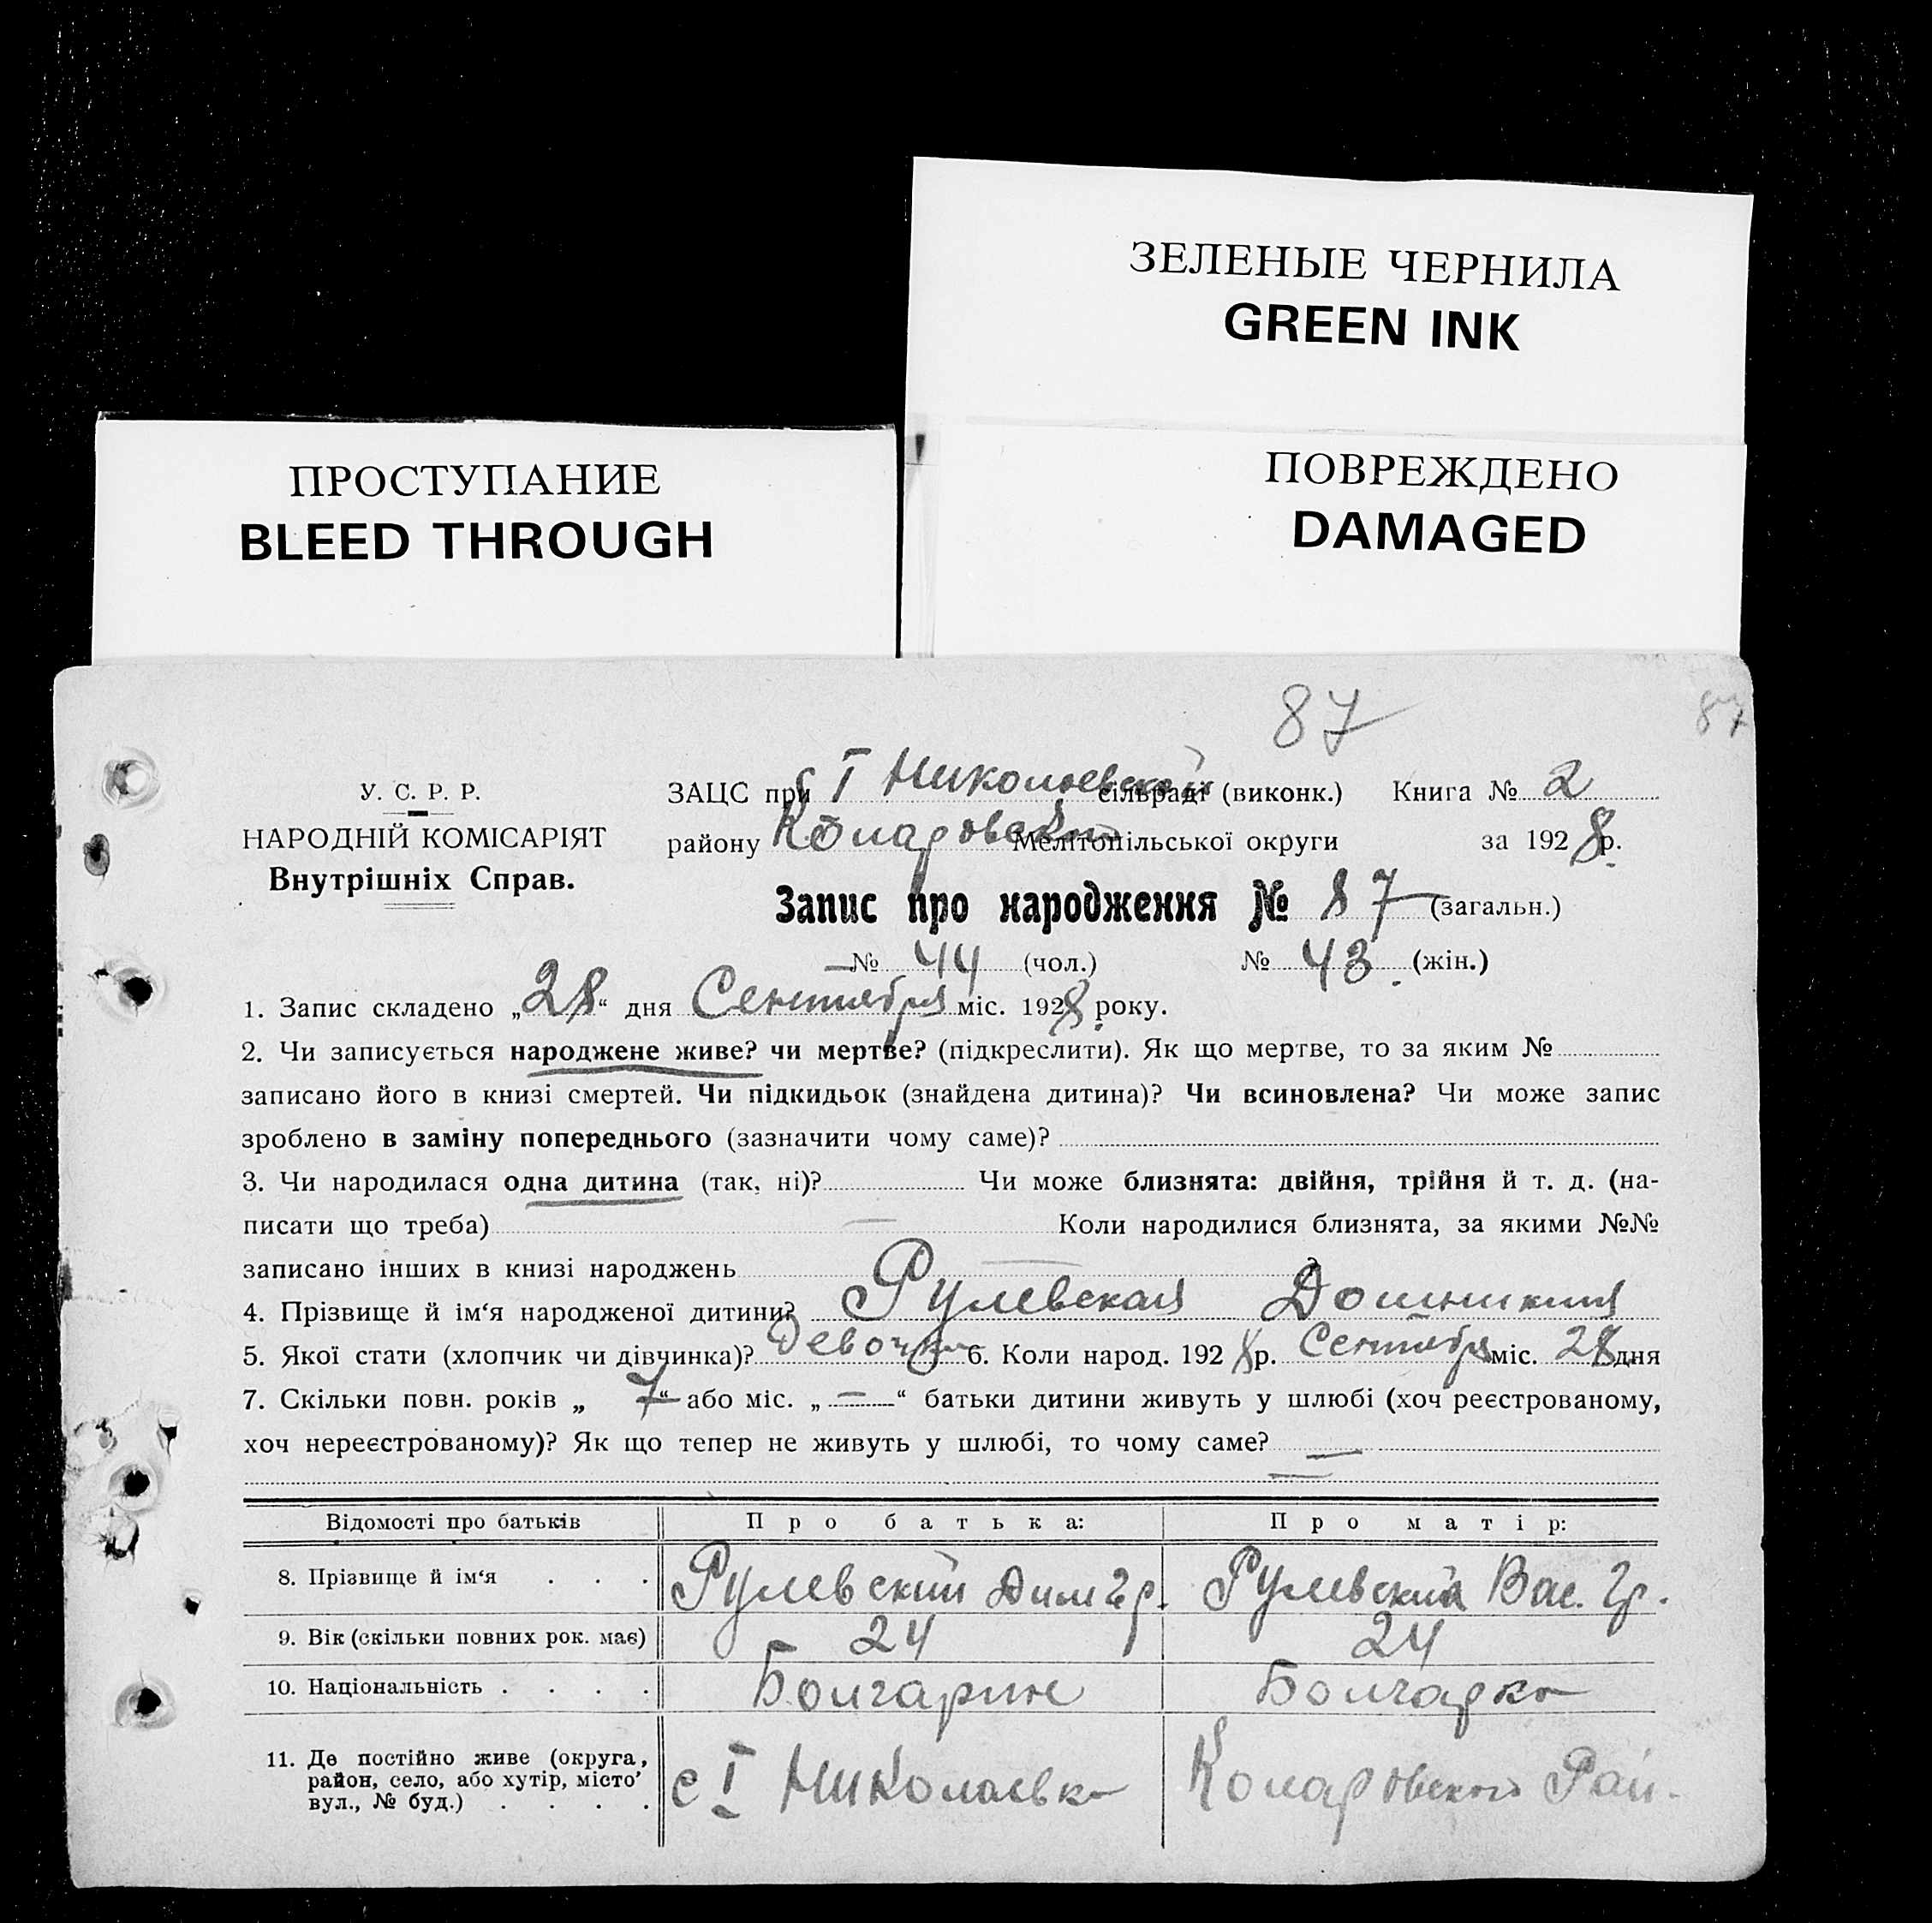 ЗЕЛЕНЫЕ ЧЕРНИЛА
GREEN INK
ПРОСТУПАНИЕ
BLEED THROUGH
ПОВРЕЖДЕНО
DAMAGED
87 87
У. С. Р. Р.
НАРОДНІЙ КОМІСАРІЯТ
Внутрішніх Справ.
ЗАЦС при I Николаевской сільраді (виконк.) Книга № 2
району Коларовского Мелітопільської округи за 1928 р.
Запис про народження № 87 (загальн.)
№ 44 (чол.) № 43 (жін.)
1. Запис складено „28“ дня Сентября міс. 1928 року.
2. Чи записується народжене живе? чи мертве? (підкреслити). Як що мертве, то за яким №
записано його в книзі смертей. Чи підкидьок (знайдена дитина)? Чи всиновлена? Чи може запис
зроблено в заміну попереднього (зазначити чому саме)?
3. Чи народилася одна дитина (так, ні)? Чи може близнята: двійня, трійня й т. д. (на-
писати що треба) — Коли народилися близнята, за якими №№
записано інших в книзі народжень — ?
4. Прізвище й ім‘я народженої дитини? Рулевская
5. Якої стати (хлопчик чи дівчинка)? Девочка 6. Коли народ. 1928 р. Сентября міс. 28 дня
7. Скільки повн. років „ 7 “ або міс. „ — “ батьки дитини живуть у шлюбі (хоч реєстрованому,
хоч нереєстрованому)? Як що тепер не живуть у шлюбі, то чому саме? —
Відомості про батьків Про батька: Про матір:
8. Прізвище й ім‘я . . . Рулевский Дим Гр. Рулевская Вас. Гр.
9. Вік (скільки повних рок. має) 24 24
10. Національність . . . . Болгарин Болгарка
11. Де постійно живе (округа,
район, село, або хутір, місто’
вул., № буд.) . . . . с I Николаевка Коларовского Рай.